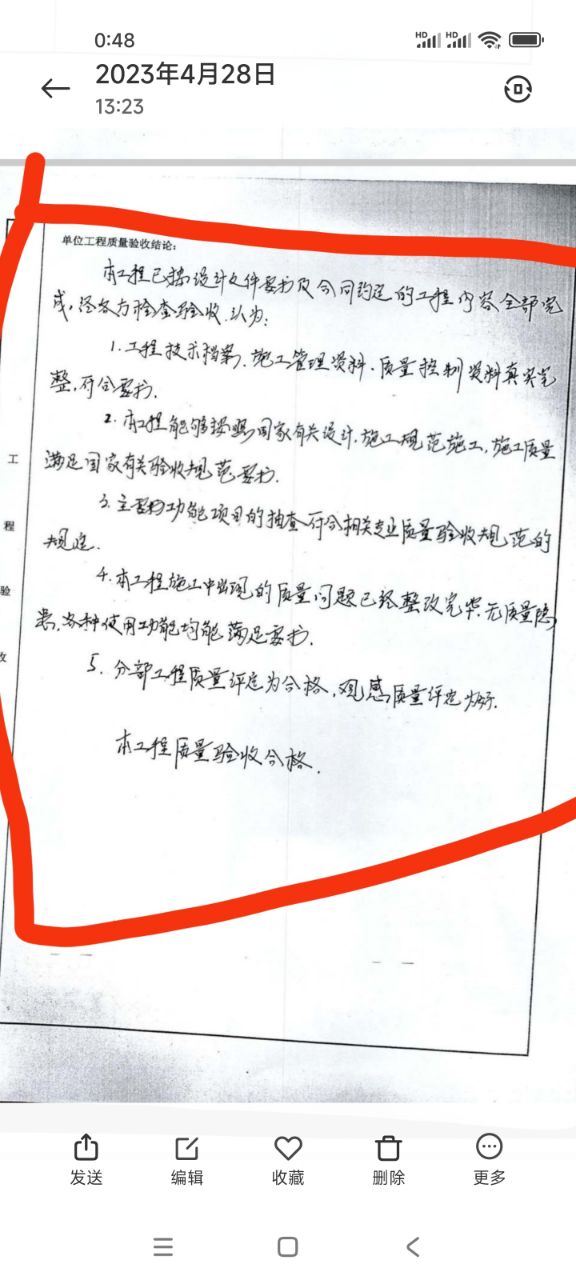 0:48
HD HD
2023年4月28日
13:23
单位工程质量验收结论:
本工程已按设计文件要求及合同约定的工程内容全部完
成,经各方检查验收,认为:
1.工程技术档案、施工管理资料、质量控制资料真实完
整,符合要求.
2.本工程能够按照国家有关设计、施工规范施工,施工质量
满足国家有关验收规范要求.
3.主要功能项目的抽查符合相关专业质量验收规范的
规定.
4.本工程施工中出现的质量问题已经整改完毕,无质量隐
患,各种使用功能均能满足要求.
5.分部工程质量评定为合格,观感质量评定为好.
本工程质量验收合格.
工
程
验
收
发送 编辑 收藏 删除 更多